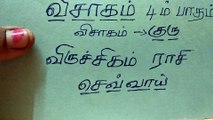 விசாகம் 4ம் பாதம்
விசாகம் → குரு
விருச்சிகம் ராசி
செவ்வாய்